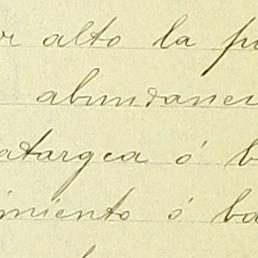 or alto la pu
abundanci
atargea ó b
imiento ó ba